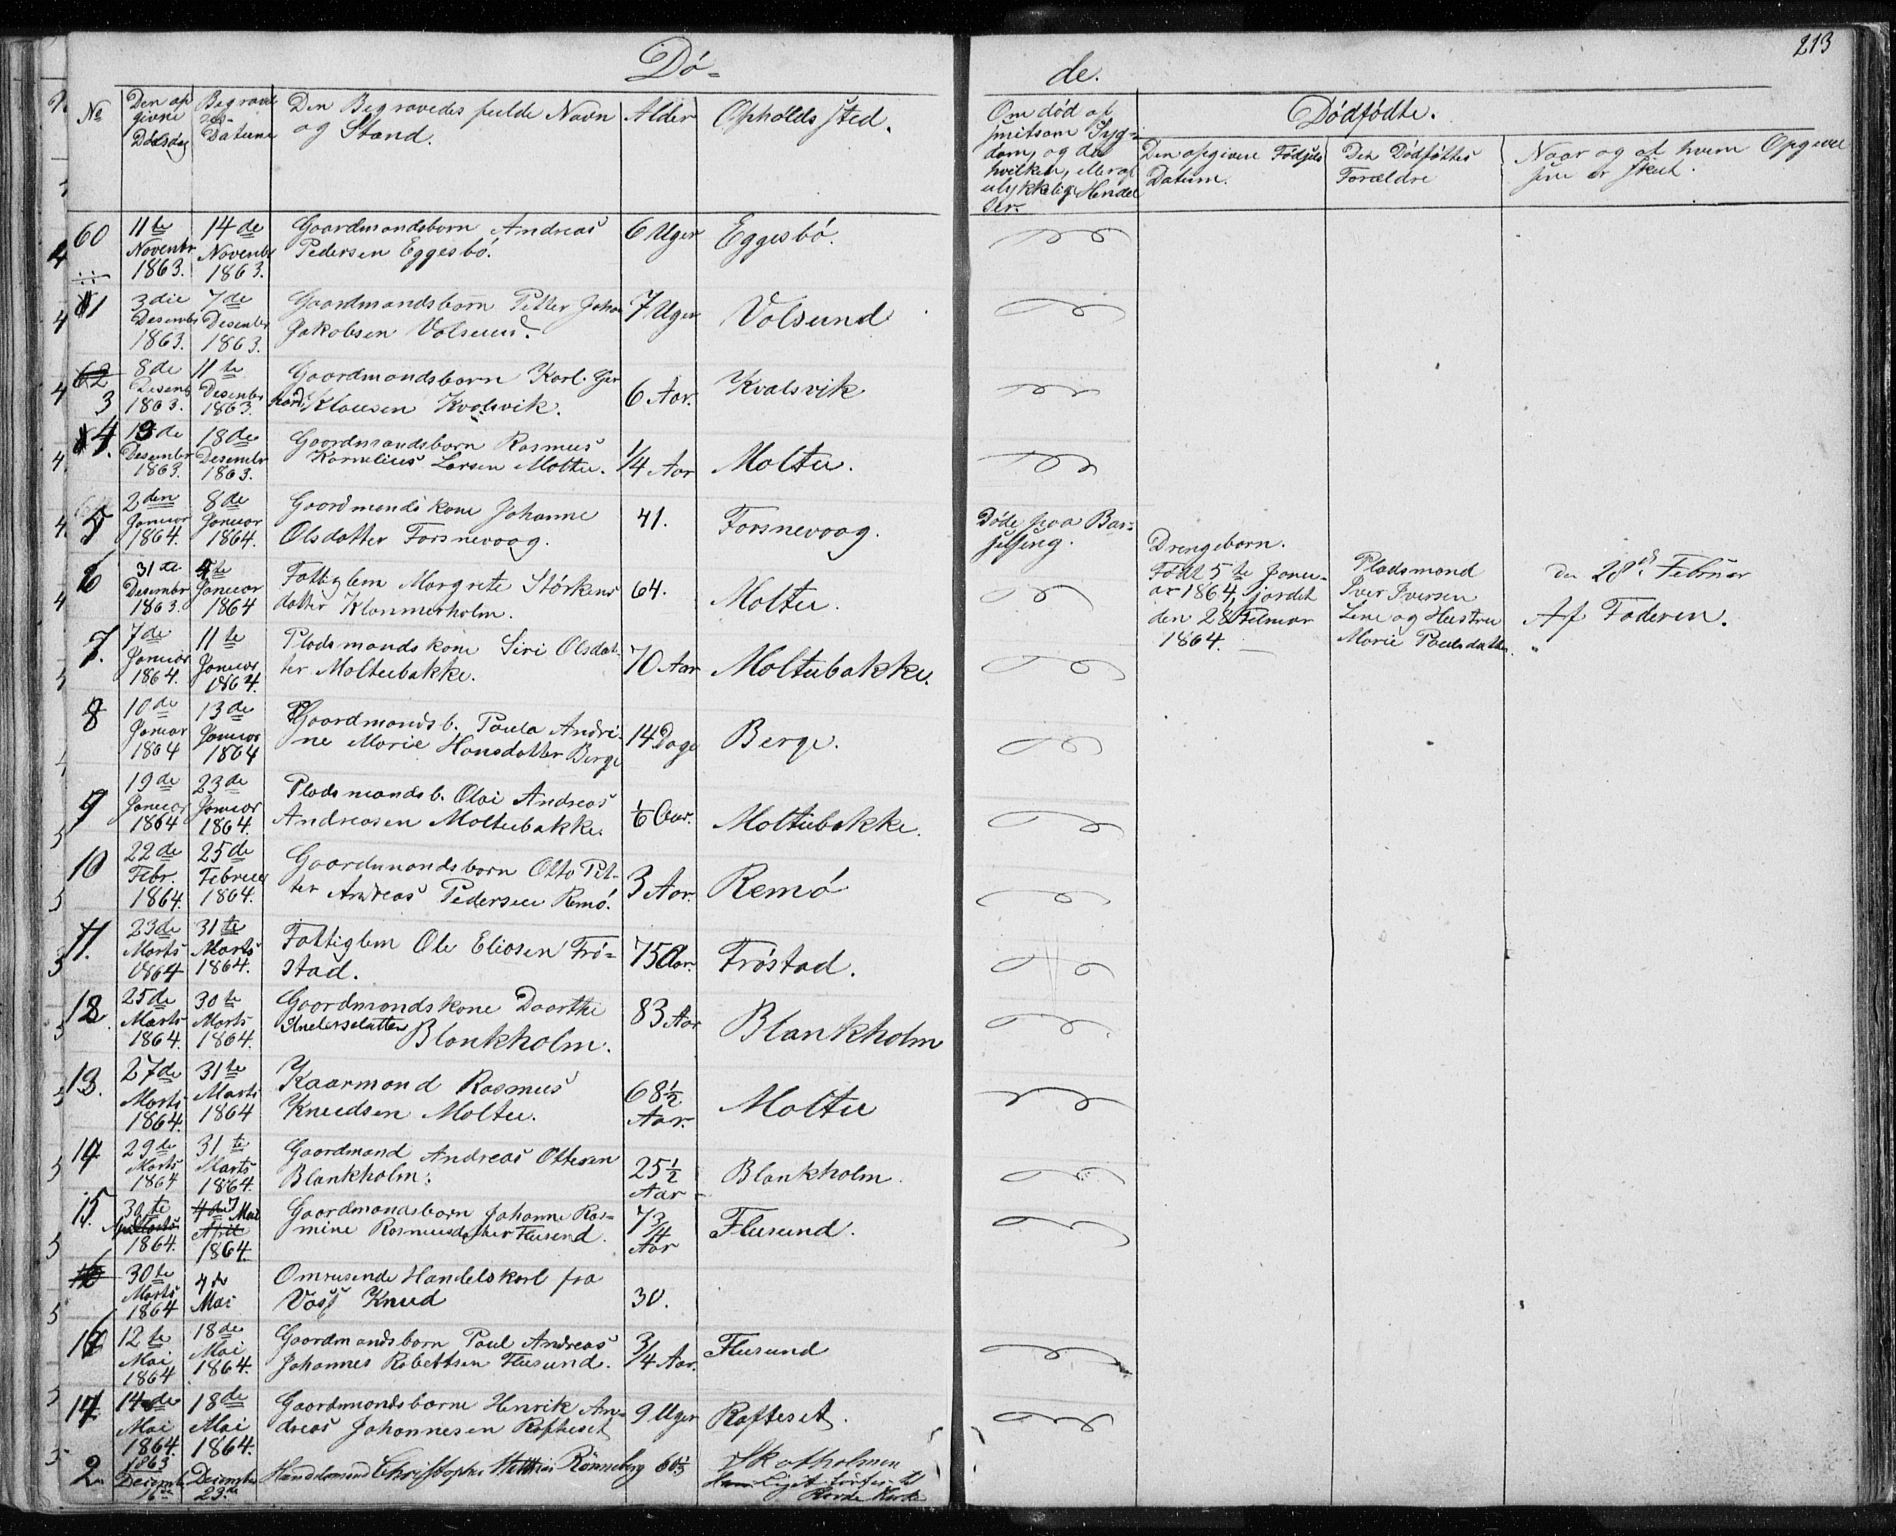 Dö-
de.
213
No
Den op
givne
Dödsdag
Begravel
ses-
Datum
Den Begravedes fulde Navn
og Stand.
Alder
Opholds sted.
Om död af
smitsom Syg-
dom, og da
hvilken, eller af
ulykkelig Hendel
ser.
Dödfödte.
Den opgivne Födsels
Datum.
Den Dödföttes
Forældre
Naar og af hvem Opgivel
sen er skeet.
60
11te
Novembr
1863.
14de
Novembr
1863.
Gaardmandsbarn Andreas
Pedersen Eggesbö.
6 Uger
Eggesbö.
1
3die
Desembr
1863.
7de
Desember
1863.
Gaardmandsbarn Petter Johan
Jakobsen Volsund.
7 Uger
Volsund
62
3
8de
Desemb
1863.
11te
Desember
1863.
Gaardmandsbarn Karl Ger
hard Klausen Kvalsvik.
6 Aar.
Kvalsvik
4.
13de
Desembr
1863.
18de
Desembr
1863.
Gaardmandsbarn Rasmus
Kornelius Larsen Moltu.
1/4 Aar
Moltu.
5
2den
Januar
1864.
8de
Januar
1864.
Gaardmandskone Johanne
Olsdatter Forsnevaag.
41.
Forsnevaag.
Döde paa Bar-
selseng.
Drengebarn.
Födt 5te Janu-
ar 1864, jordet
den 28 Februar
1864.
Pladsmand
Iver Iversen
Lene og Hustru
Marie Poulsdatter.
Den 28de Februar
Af Faderen.
6
31te
Desembr
1863.
4te
Januar
1864
Fattiglem Margrete Störkers
datter Klammerholm.
64.
Moltu.
7.
7de
Januar
1864.
11te
Januar
1864.
Pladsmandskone Siri Olsdat-
ter Moltubakke.
70 Aar
Moltubakke.
8
10de
Januar
1864
13de
Januar
1864
Gaardmandsb. Paula Andri-
ne Marie Hansdatter Berge
14 Dage
Berge.
9
19de
Januar
1864
23de
Januar
1864.
Pladsmandsb. Olai Andreas
Andreasen Moltubakke.
1/6 Aar.
Moltubakke.
10
22de
Febr.
1864.
25de
Februar
1864.
Gaardmandsbarn Otto Pet-
ter Andreas Pedersen Remö.
3 Aar.
Remö
11.
23de
Marts
1864
31te
Marts
1864.
Fattiglem Ole Eliasen Frö-
stad.
75 Aar.
Fröstad.
12
25de
Marts
1864.
30te
Marts
1864.
Gaardmandskone Daarthe
Andersdatter Blankholm.
83 Aar
Blankholm
13.
27de
Marts
1864.
31te
Marts
1864
Kaarmand Rasmus
Knudsen Moltu.
68 1/2
Aar.
Moltu
14
29te
Marts
1864
31te
Marts
1864.
Gaardmand Andreas Ottesen
Blankholm.
25 1/2
Aar
Blankholm.
15.
30te
1864.
Mai
April
1864.
Gaardmandsbarn Johanne Ras-
mine Rasmusdatter Flusund.
7 3/4
Aar
Flusund.
30te
Marts
1864
4de
Mai
Omreisende Handelskarl fra
Voss Knud
30.
16
12te
Mai
1864
18de
Mai
1864.
Gaardmandsbarn Paul Andreas
Johannes Robertsen Flusund.
3/4 Aar.
Flusund
17
14de
Mai
1864.
18de
Mai
1864.
Gaardmandsbarn Henrik An-
dreas Johannesen Rafteset
9 Uger
Rafteset.
2
1863
December
16de
December
23de
Handelsmand Christopher Mathias Rönneberg
60 1/3
Skotholmen
Liget förtes til
Kirke